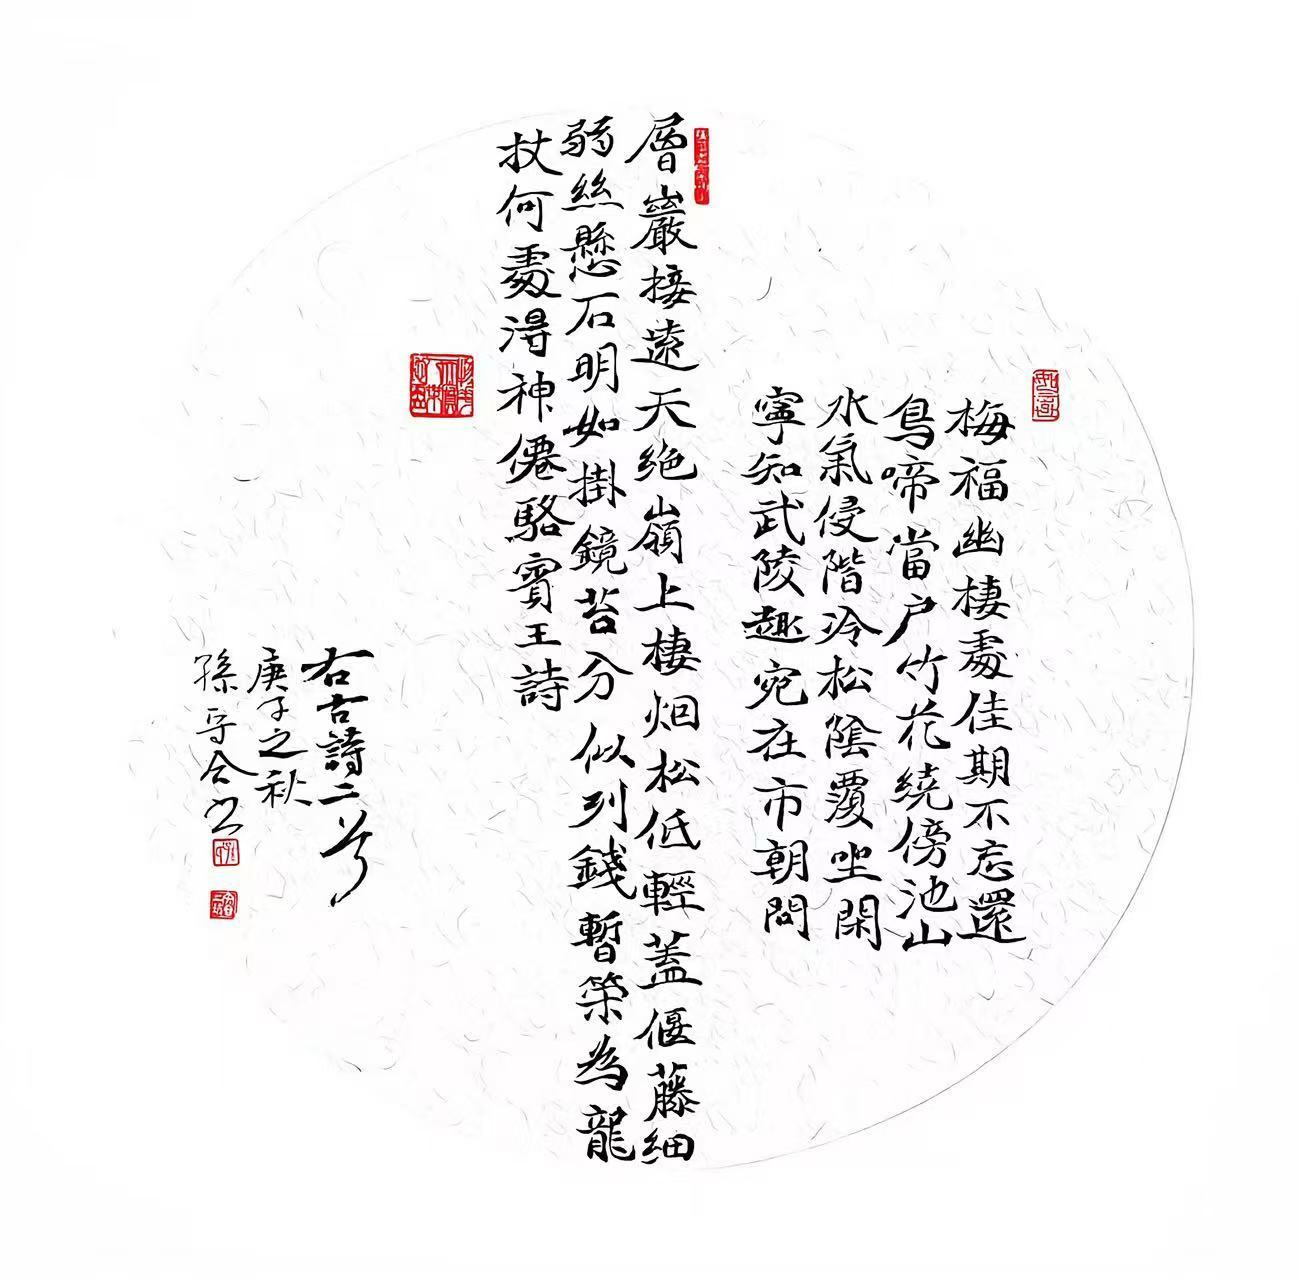 梅福幽棲處佳期不忘還
鳥啼當户竹花繞傍池山
水氣侵階冷松陰覆坐閑
寧知武陵趣宛在市朝間
層巖接遠天絶嶺上棲烟松低輕蓋偃藤細
弱絲懸石明如掛鏡苔分似列錢暫策為龍
杖何處得神僊駱賓王詩
右古詩二首
庚子之秋
孫守合书